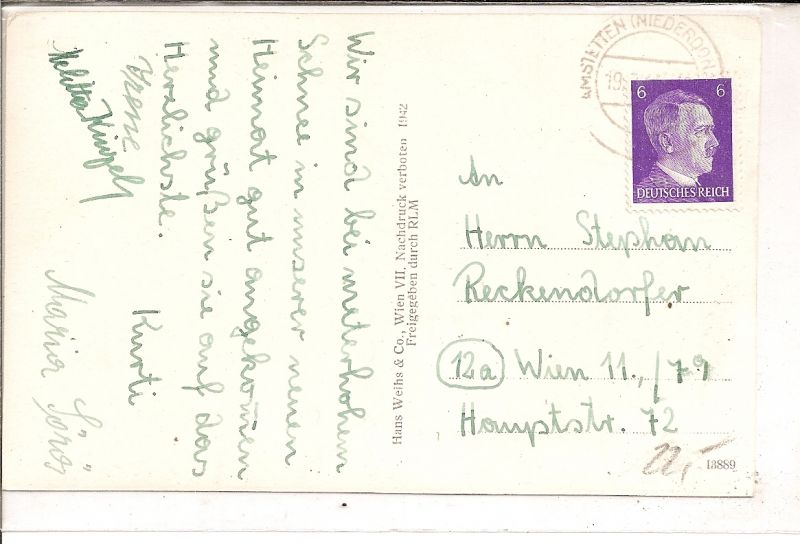 Wir sind bei meterhohem
Schnee in unserer neuen
Heimat gut angekom̄en
und grüßen sie auf das
Herzlichste.
Kurti
Irene
Melitta
Maria
Hans Weihs & Co., Wien VII. Nachdruck verboten 1942
Freigegeben durch RLM
AMSTETTEN (NIEDERDON
19.
6 6
DEUTSCHES REICH
An
Herrn Stephan
Reckendorfer
12a Wien 11., /79
Hauptstr. 72
22,-
13889